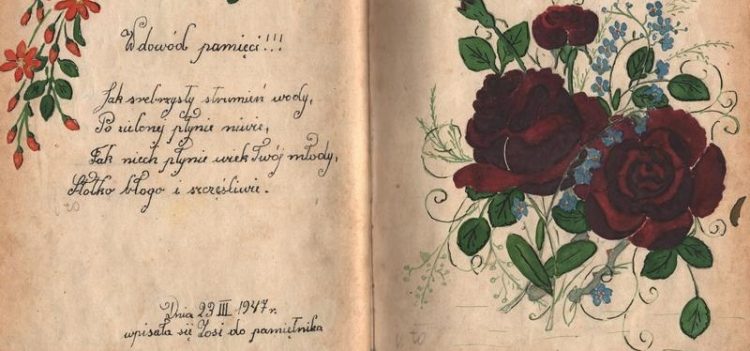 W dowód pamięci!!!
Jak srebrzysty strumień wody,
Po zielonej płynie niwie,
Tak niech płynie wiek Twój młody,
Słodko błogo i szczęśliwie.
Dnia 23 III 1947 r.
wpisała się Zosi do pamiętnika